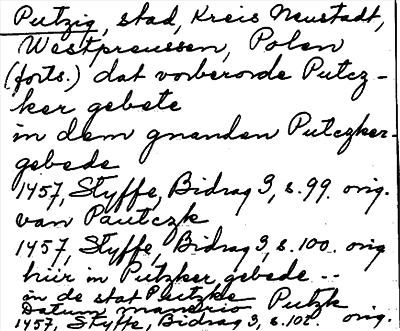 Putzig, stad, Kreis Neustadt,
Westpreussen, Polen
(forts.) dat vorberorde Putcz-
ker gebete
in dem gnanden Putczker-
gebede
1457, Styffe, Bidrag 3, s. 99. orig.
van Pautczk
1457, Styffe, Bidrag 3, s. 100. orig
hiir in Putzker gebede --
in de stat Pautzke
Datum Putzk
1457, Styffe, Bidrag 3, s. 102 orig.